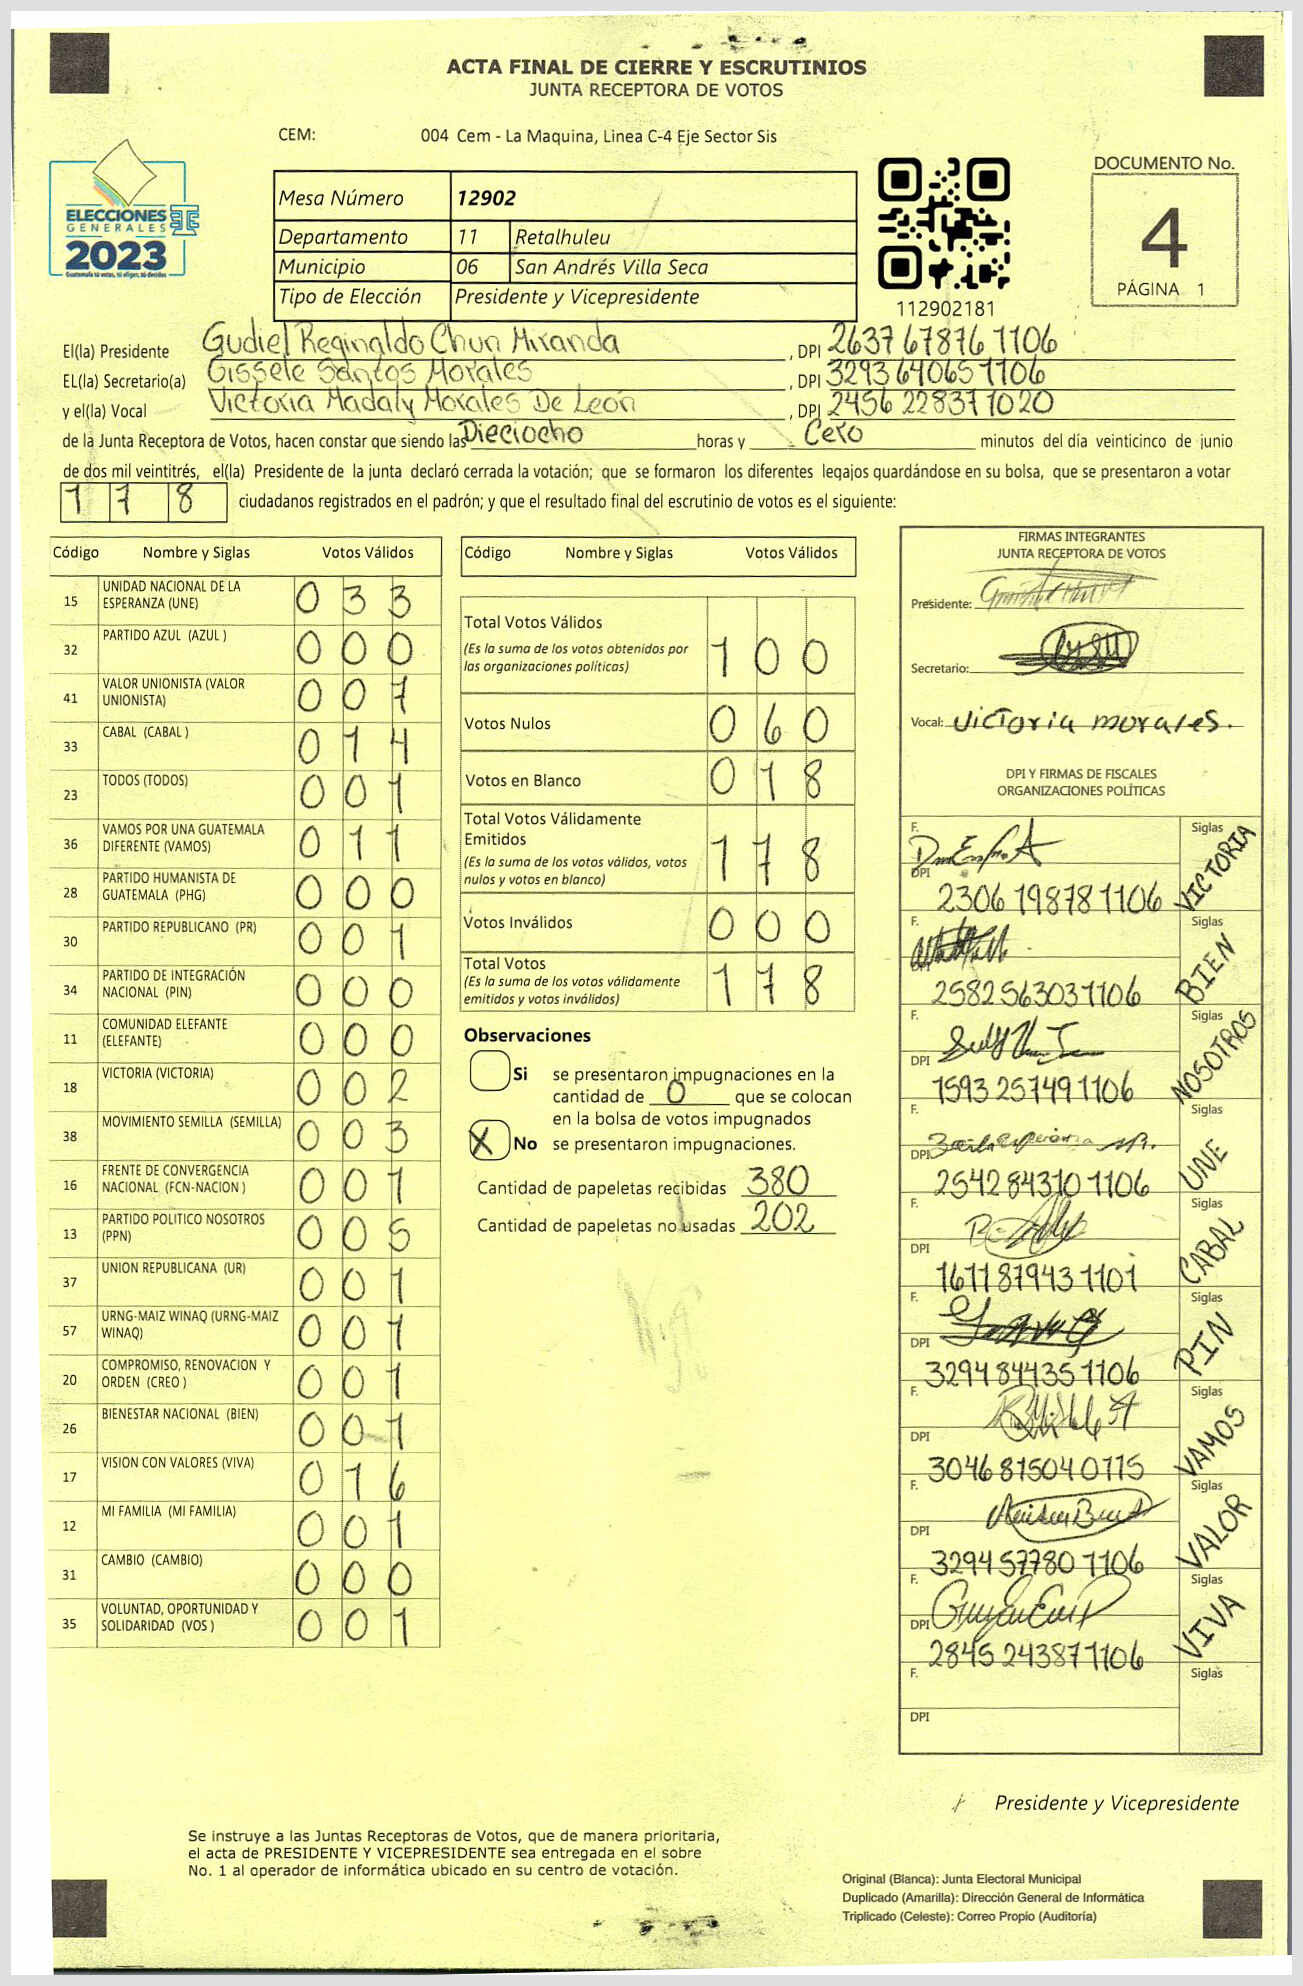 ACTA FINAL DE CIERRE Y ESCRUTINIOS
JUNTA RECEPTORA DE VOTOS
CEM: 004 Cem - La Maquina, Linea C-4 Eje Sector Sis
ELECCIONES
GENERALES
2023
Guatemala tú votas, tú eliges, tú decides
Mesa Número 12902
Departamento 11 Retalhuleu
Municipio 06 San Andrés Villa Seca
Tipo de Elección Presidente y Vicepresidente
112902181
DOCUMENTO No.
4
PÁGINA 1
El(la) Presidente Gudiel Reginaldo Chun Miranda, DPI 2637 67876 1106
EL(la) Secretario(a) Gissele Santos Morales, DPI 3293 64065 1106
y el(la) Vocal Victoria Madaly Morales De León, DPI 2456 22837 1020
de la Junta Receptora de Votos, hacen constar que siendo las Dieciocho horas y Cero minutos del día veinticinco de junio
de dos mil veintitrés, el(la) Presidente de la junta declaró cerrada la votación; que se formaron los diferentes legajos guardándose en su bolsa, que se presentaron a votar
178 ciudadanos registrados en el padrón; y que el resultado final del escrutinio de votos es el siguiente:
Código Nombre y Siglas Votos Válidos
15 UNIDAD NACIONAL DE LA ESPERANZA (UNE) 033
32 PARTIDO AZUL (AZUL ) 000
41 VALOR UNIONISTA (VALOR UNIONISTA) 007
33 CABAL (CABAL ) 014
23 TODOS (TODOS) 001
36 VAMOS POR UNA GUATEMALA DIFERENTE (VAMOS) 011
28 PARTIDO HUMANISTA DE GUATEMALA (PHG) 000
30 PARTIDO REPUBLICANO (PR) 001
34 PARTIDO DE INTEGRACIÓN NACIONAL (PIN) 000
11 COMUNIDAD ELEFANTE (ELEFANTE) 000
18 VICTORIA (VICTORIA) 002
38 MOVIMIENTO SEMILLA (SEMILLA) 003
16 FRENTE DE CONVERGENCIA NACIONAL (FCN-NACION ) 001
13 PARTIDO POLITICO NOSOTROS (PPN) 005
37 UNION REPUBLICANA (UR) 001
57 URNG-MAIZ WINAQ (URNG-MAIZ WINAQ) 001
20 COMPROMISO, RENOVACION Y ORDEN (CREO ) 001
26 BIENESTAR NACIONAL (BIEN) 001
17 VISION CON VALORES (VIVA) 016
12 MI FAMILIA (MI FAMILIA) 001
31 CAMBIO (CAMBIO) 000
35 VOLUNTAD, OPORTUNIDAD Y SOLIDARIDAD (VOS ) 001
Código Nombre y Siglas Votos Válidos
Total Votos Válidos 100
(Es la suma de los votos obtenidos por
las organizaciones políticas)
Votos Nulos 060
Votos en Blanco 018
Total Votos Válidamente
Emitidos 178
(Es la suma de los votos válidos, votos
nulos y votos en blanco)
Votos Inválidos 000
Total Votos 178
(Es la suma de los votos válidamente
emitidos y votos inválidos)
Observaciones
Si se presentaron impugnaciones en la
cantidad de 0 que se colocan
en la bolsa de votos impugnados
X No se presentaron impugnaciones.
Cantidad de papeletas recibidas 380
Cantidad de papeletas no usadas 202
FIRMAS INTEGRANTES
JUNTA RECEPTORA DE VOTOS
Presidente:
Secretario:
Vocal: Victoria morales.
DPI Y FIRMAS DE FISCALES
ORGANIZACIONES POLÍTICAS
F. Siglas VICTORIA
DPI 2306 19878 1106
F. Siglas BIEN
DPI 2582 56303 1106
F. Siglas NOSOTROS
DPI 1593 25749 1106
F. Siglas UNE
DPI 2542 84310 1106
F. Siglas CABAL
DPI 1611 87943 1101
F. Siglas PIN
DPI 3294 84435 1106
F. Siglas VAMOS
DPI 3046 81504 0115
F. Siglas VALOR
DPI 3294 57780 1106
F. Siglas VIVA
DPI 2845 24387 1106
F. Siglas
DPI
Presidente y Vicepresidente
Se instruye a las Juntas Receptoras de Votos, que de manera prioritaria,
el acta de PRESIDENTE Y VICEPRESIDENTE sea entregada en el sobre
No. 1 al operador de informática ubicado en su centro de votación.
Original (Blanca): Junta Electoral Municipal
Duplicado (Amarilla): Dirección General de Informática
Triplicado (Celeste): Correo Propio (Auditoría)